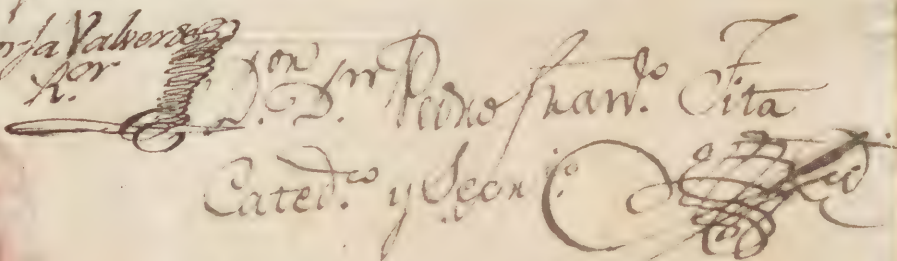 Valverde
R.or
D.on D.r Pedro Fran.co Fita
Cated.co y Secri.o